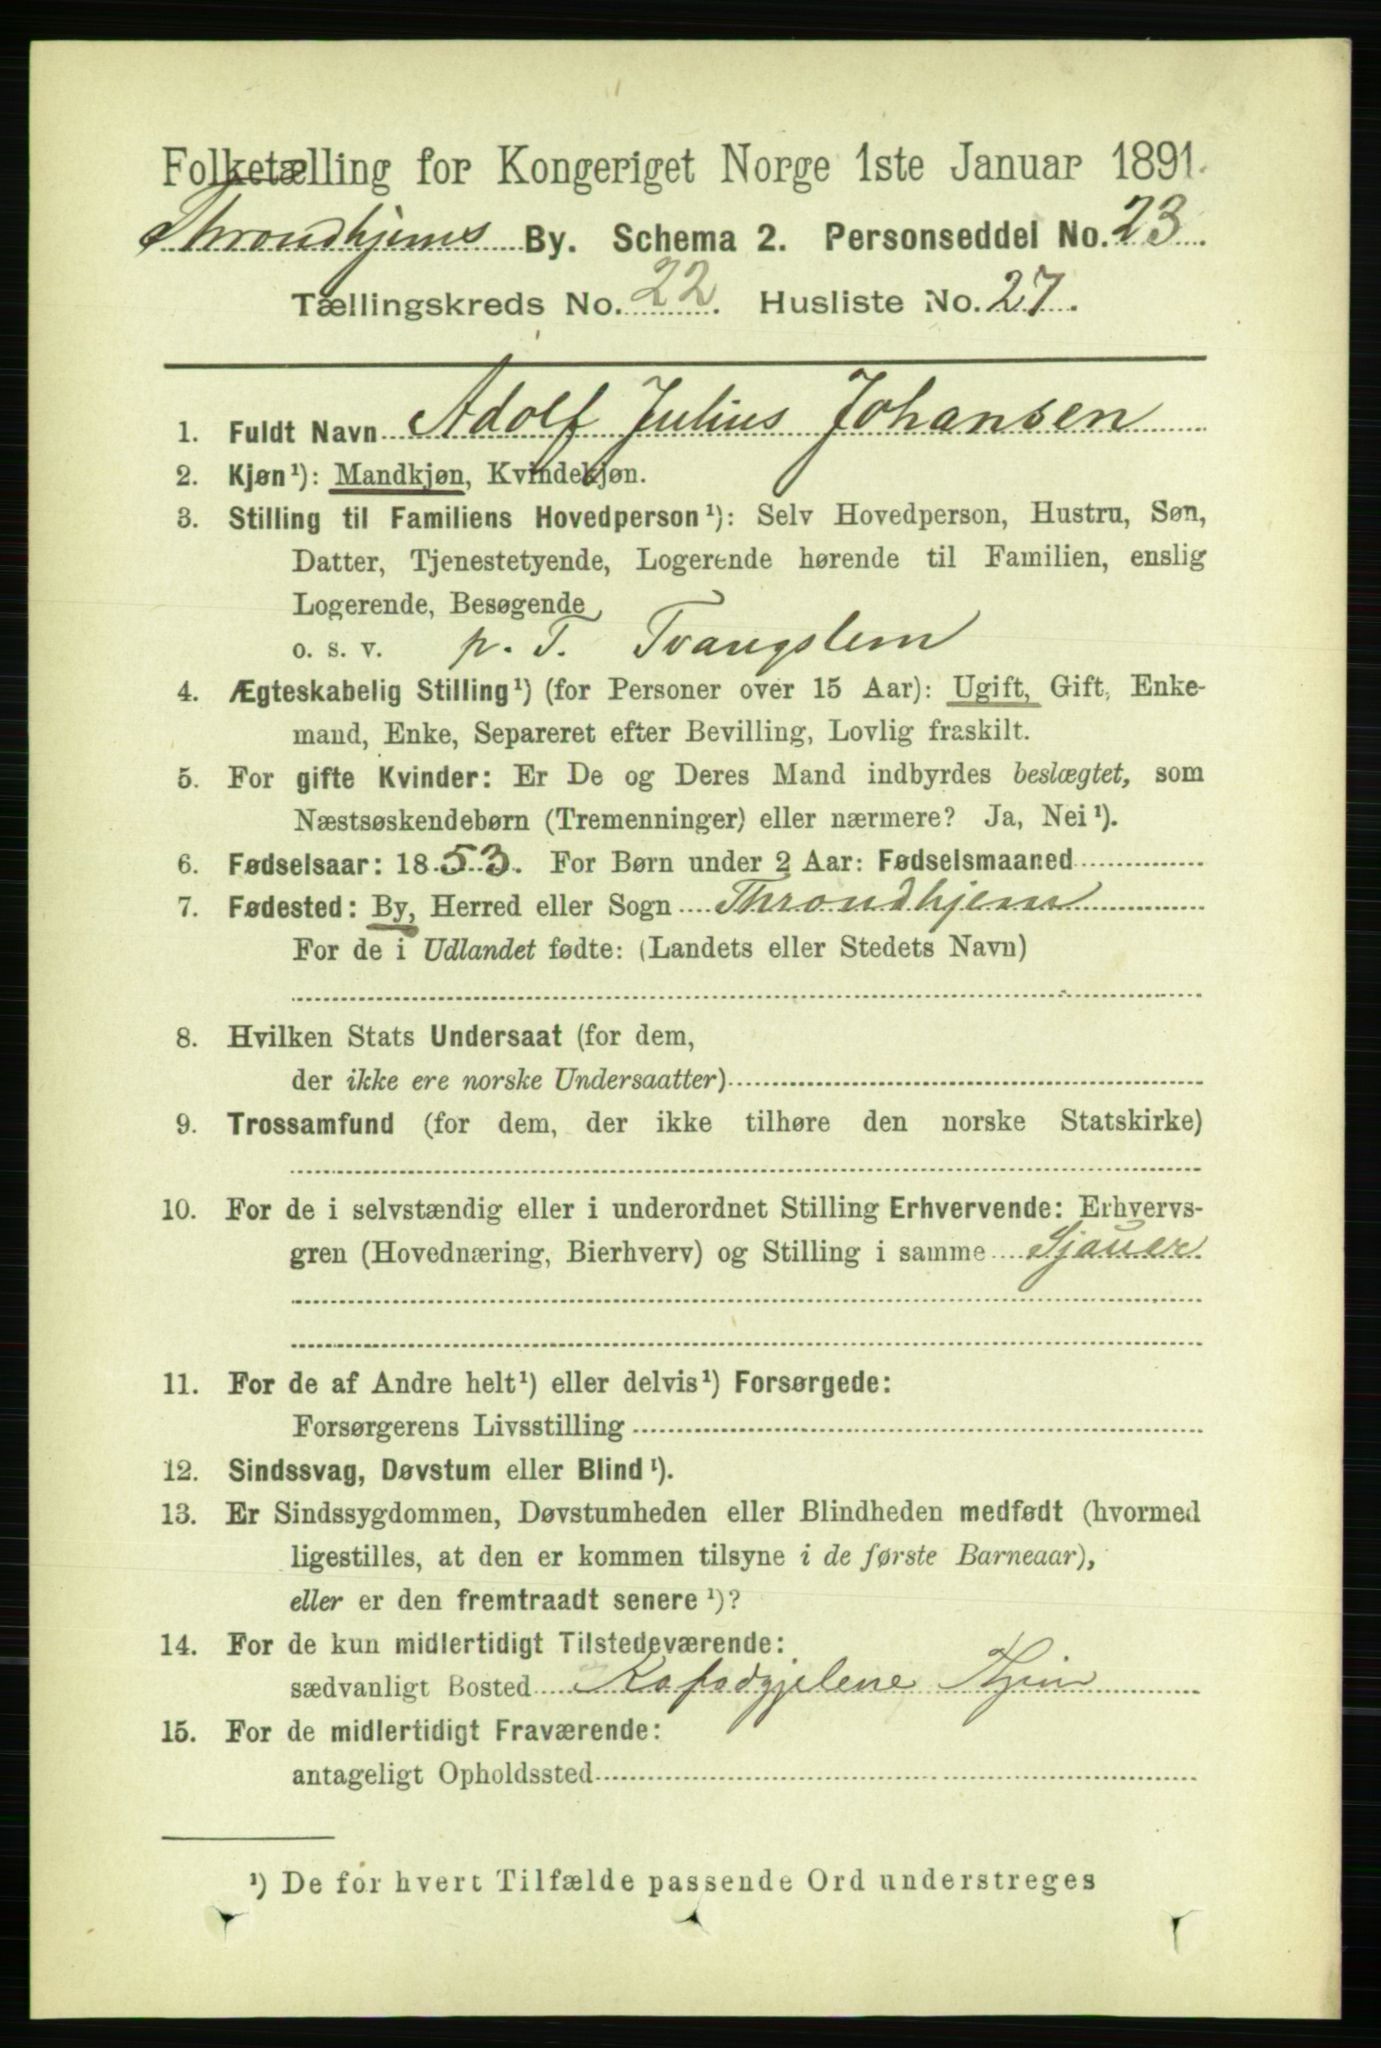 Folketælling for Kongeriget Norge 1ste Januar 1891.
Throndhjems By. Schema 2. Personseddel No. 23.
Tællingskreds No. 22. Husliste No. 27.
1. Fuldt Navn Adolf Julius Johansen
2. Kjøn¹): Mandkjøn, Kvindekjøn.
3. Stilling til Familiens Hovedperson¹): Selv Hovedperson, Hustru, Søn,
Datter, Tjenestetyende, Logerende hørende til Familien, enslig
Logerende, Besøgende
o. s. v. p. T. Tvangslem
4. Ægteskabelig Stilling¹) (for Personer over 15 Aar): Ugift, Gift, Enke-
mand, Enke, Separeret efter Bevilling, Lovlig fraskilt.
5. For gifte Kvinder: Er De og Deres Mand indbyrdes beslægtet, som
Næstsøskendebørn (Tremenninger) eller nærmere? Ja, Nei¹).
6. Fødselsaar: 1853. For Børn under 2 Aar: Fødselsmaaned
7. Fødested: By, Herred eller Sogn Throndhjem
For de i Udlandet fødte: (Landets eller Stedets Navn)
8. Hvilken Stats Undersaat (for dem,
der ikke ere norske Undersaatter)
9. Trossamfund (for dem, der ikke tilhøre den norske Statskirke)
10. For de i selvstændig eller i underordnet Stilling Erhvervende: Erhvervs-
gren (Hovednæring, Bierhverv) og Stilling i samme Sjauer
11. For de af Andre helt¹) eller delvis¹) Forsørgede:
Forsørgerens Livsstilling
12. Sindssvag, Døvstum eller Blind¹).
13. Er Sindssygdommen, Døvstumheden eller Blindheden medfødt (hvormed
ligestilles, at den er kommen tilsyne i de første Barneaar),
eller er den fremtraadt senere¹)?
14. For de kun midlertidigt Tilstedeværende:
sædvanligt Bosted
15. For de midlertidigt Fraværende:
antageligt Opholdssted
¹) De for hvert Tilfælde passende Ord understreges